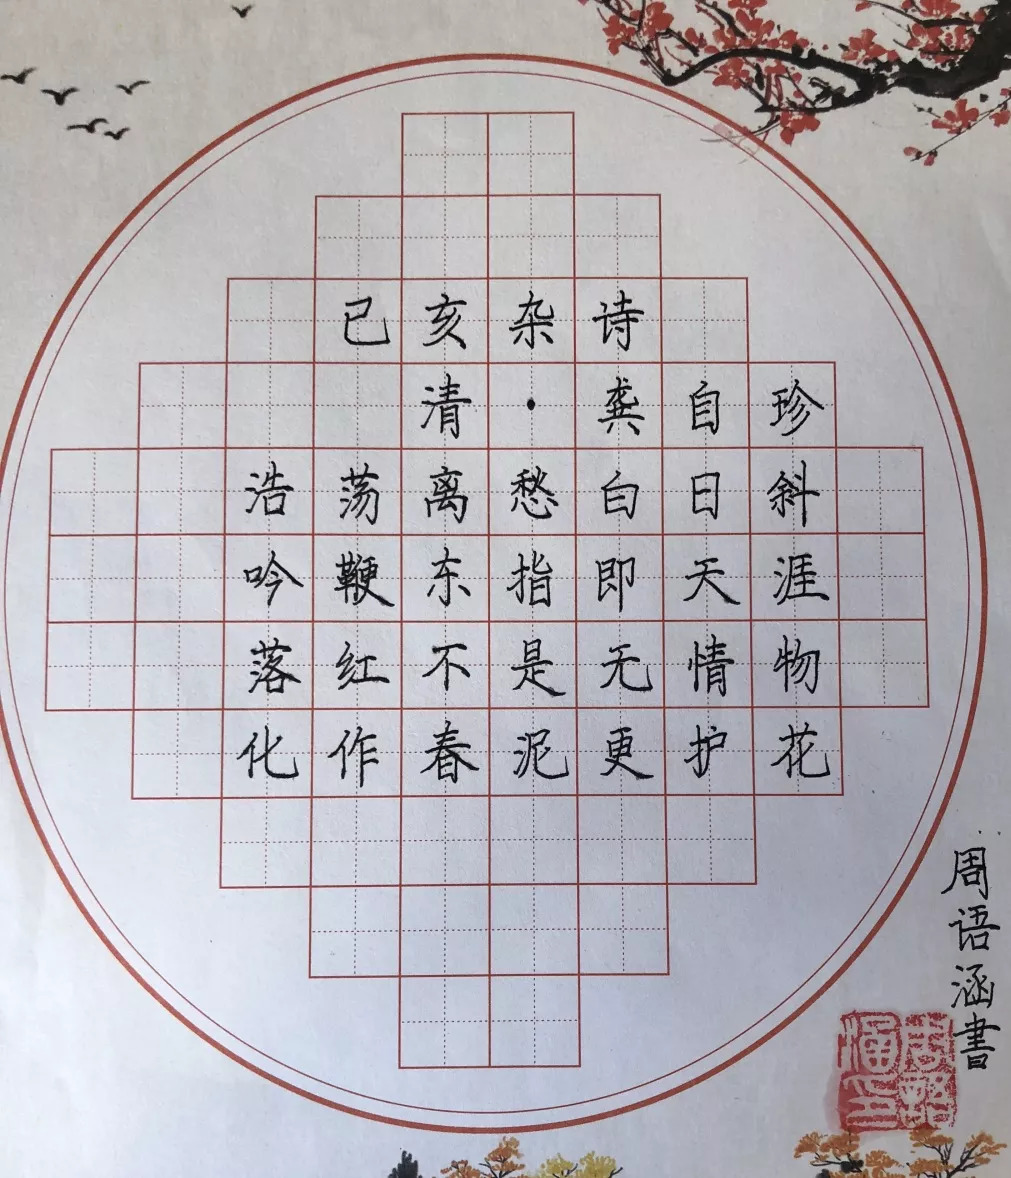 已亥杂诗
清·龚自珍
浩荡离愁白日斜
吟鞭东指即天涯
落红不是无情物
化作春泥更护花
周语涵書
周语涵印